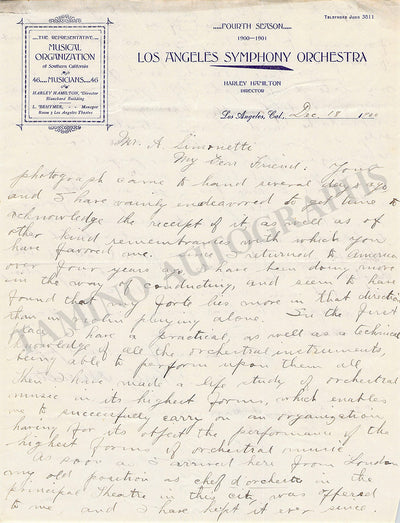 TELEPHONE JOHN 3811
THE REPRESENTATIVE
MUSICAL
ORGANIZATION
of Southern California
46...MUSICIANS...46
HARLEY HAMILTON, Director
Blanchard Building
L. BEHYMER, Manager
Room 7 Los Angeles Theatre
FOURTH SEASON
1900-1901
LOS ANGELES SYMPHONY ORCHESTRA
HARLEY HAMILTON
DIRECTOR
Los Angeles, Cal., Dec. 18 1900
Mr. A. Simonetti
My Dear Friend: Your
photograph came to hand several days ago
and I have vainly endeavored to find time to
acknowledge the receipt of it as well as of
other kind remembrances with which you
have favored me. returned to America
over four years ago have been doing more
in the way of conducting, and seem to have
found that my forte lies more in that direction
than in violin playing alone. In the first
place I have a practical, as well as technical
knowledge of all the orchestral instruments,
being able to perform upon them all,
then I have made a life study of orchestral
music in its highest forms, which enables
me to successfully carry on an organization
having for its object the performance of the
highest forms of orchestral music.
As soon as I arrived here from London
my old position as chef d'orchestre in the
principal Theatre in this city was offered
to me and I have kept it ever since.
TAMINO AUTOGRAPHS